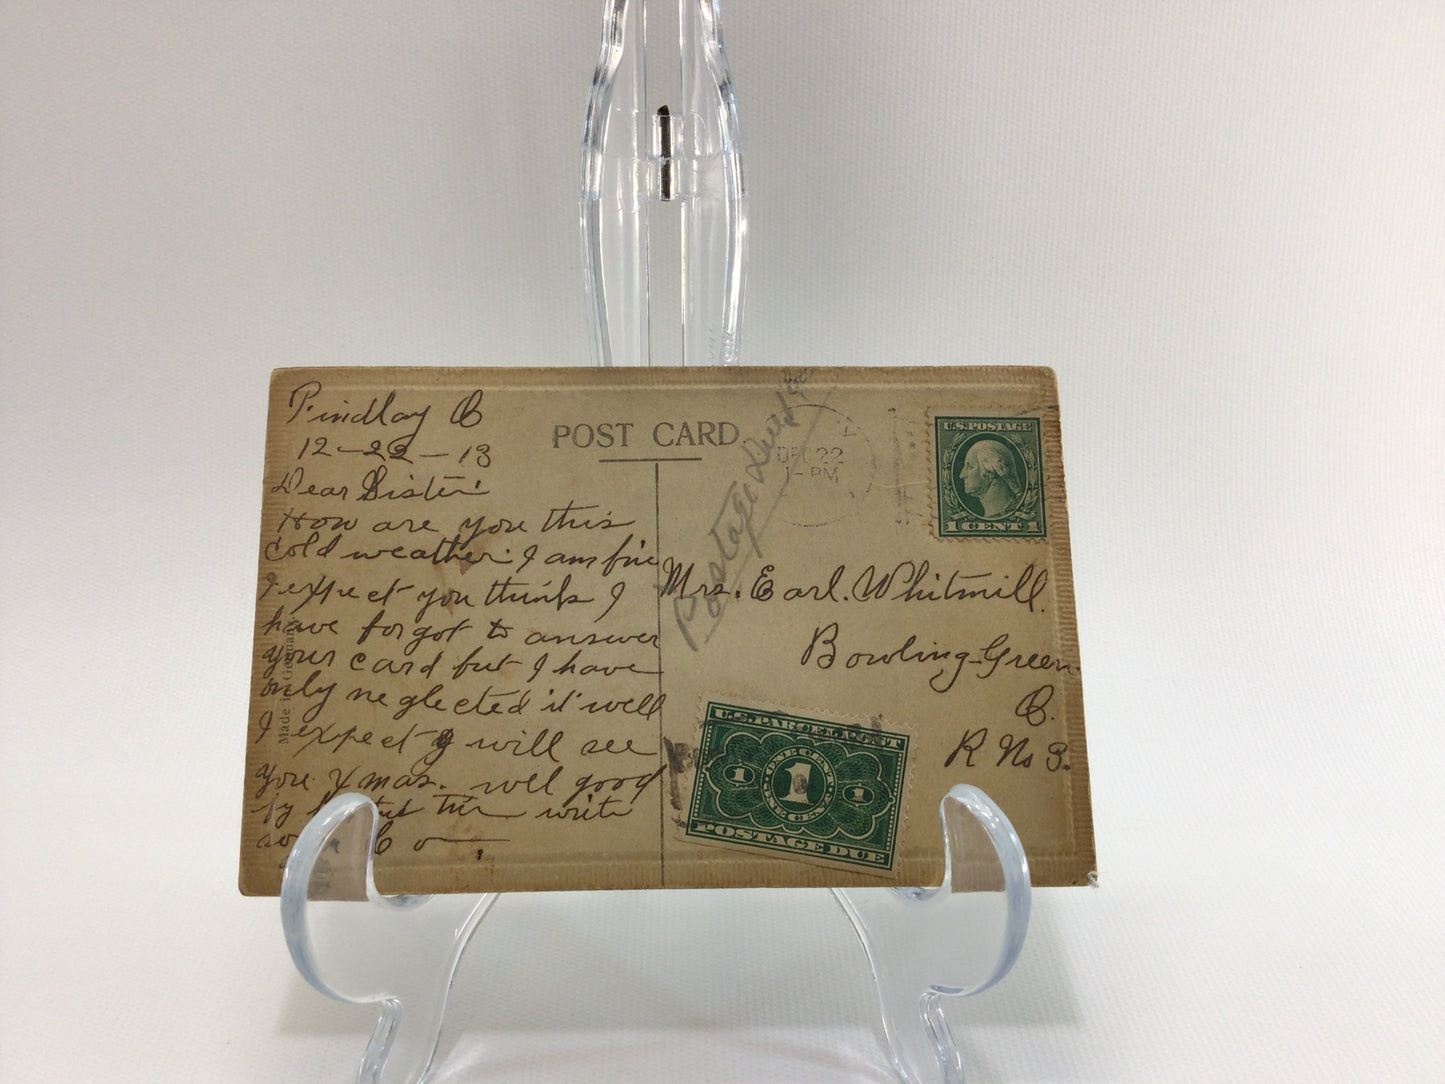 Findlay O
12-22-13
Dear Sister
How are you this
cold weather. I am fine
I expect you think I
have forgot to answer
your card but I have
only neglected it well
I expect I will see
you Xmas. well good
by write
so
Made in Germany
POST CARD
Postage Due 1¢
DEC 22
1-PM
U.S. POSTAGE
1 CENT 1
Mrs. Earl. Whitmill.
Bowling-Green.
O.
R No 3.
U.S. PARCEL POST
ONE CENT
1 1 1
ONE CENT
POSTAGE DUE